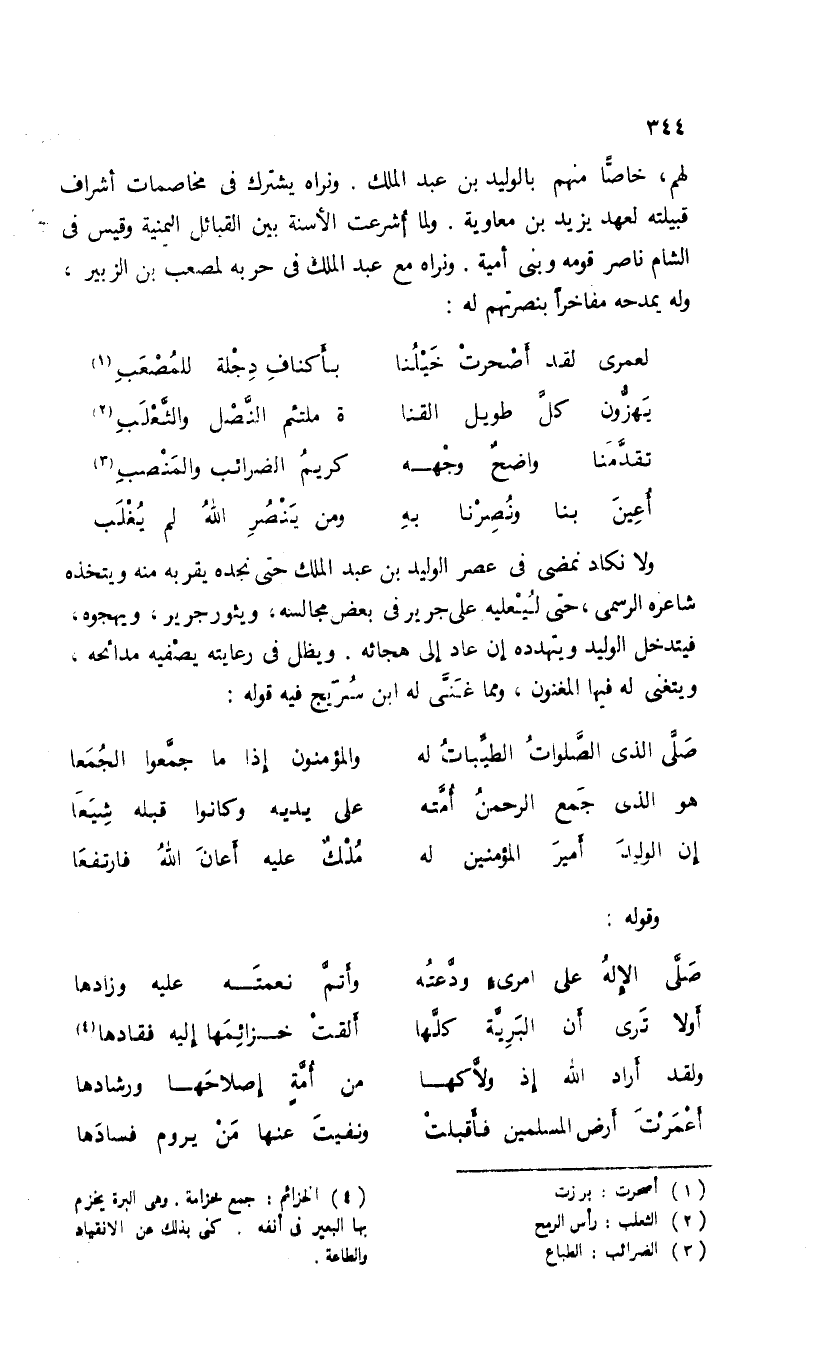 ٣٤٤
لهم، خاصًّا منهم بالوليد بن عبد الملك . ونراه يشترك فى مخاصمات أشراف
قبيلته لعهد يزيد بن معاوية . ولما أُشرعت الأسنة بين القبائل اليمنية وقيس فى
الشام ناصر قومه وبنى أمية . ونراه مع عبد الملك فى حربه لمصعب بن الزبير ،
وله يمدحه مفاخراً بنصرتهم له :
لعمرى لقد أَصْحرتْ خَيْلُنا بأَكنافِ دِجْلة للمُصْعَبِ(١)
يَهزُّون كلَّ طويل القنا ة ملتئم النَّصْل والثَّعْلَبِ(٢)
تقدَّمَنا واضحٌ وجْهــه كريمُ الضرائب والمَنْصبِ(٣)
أُعِينَ بنا ونُصِرْنا بهِ ومن يَنْصُرِ اللهُ لم يُغْلَب
ولا نكاد نمضى فى عصر الوليد بن عبد الملك حتى نجده يقربه منه ويتخذه
شاعره الرسمى ، حتى لَيُعْليه على جرير فى بعض مجالسه، ويثور جرير ، ويهجوه،
فيتدخل الوليد ويتهدده إن عاد إلى هجائه . ويظل فى رعايته يصْفيه مدائحه ،
ويتغنى له فيها المغنون ، ومما غَنَّى له ابن سُرَيج فيه قوله :
صَلَّى الذى الصَّلواتُ الطيِّباتُ له والمؤمنون إذا ما جمَّعوا الجُمَعا
هو الذى جَمع الرحمنُ أُمَّته على يديه وكانوا قبله شِيَعَا
إن الوليدَ أَميرَ المؤمنين له مُلْكٌ عليه أَعانَ اللهُ فارتفعَا
وقوله :
صَلَّى الإِلهُ على امرىءٍ ودَّعتُه وأَتمَّ نعمتَــه عليه وزادها
أَولا تَرى أَن البَرِيَّة كلَّها أَلقتْ خــزائِمَها إليه فقادها(٤)
ولقد أَراد الله إذ ولاَّكهــا من أُمَّةٍ إصلاحَهــا ورشادها
أَعْمَرْتَ أَرض المسلمين فأَقبلتْ ونفيتَ عنها مَنْ يروم فسادَها
(١) أصحرت : برزت
(٢) الثعلب : رأس الرمح
(٣) الضرائب : الطباع
(٤) الخزائم : جمع خزامة . وهى البرة يخزم
بها البعير فى أنفه . كنى بذلك عن الانقياد
والطاعة .